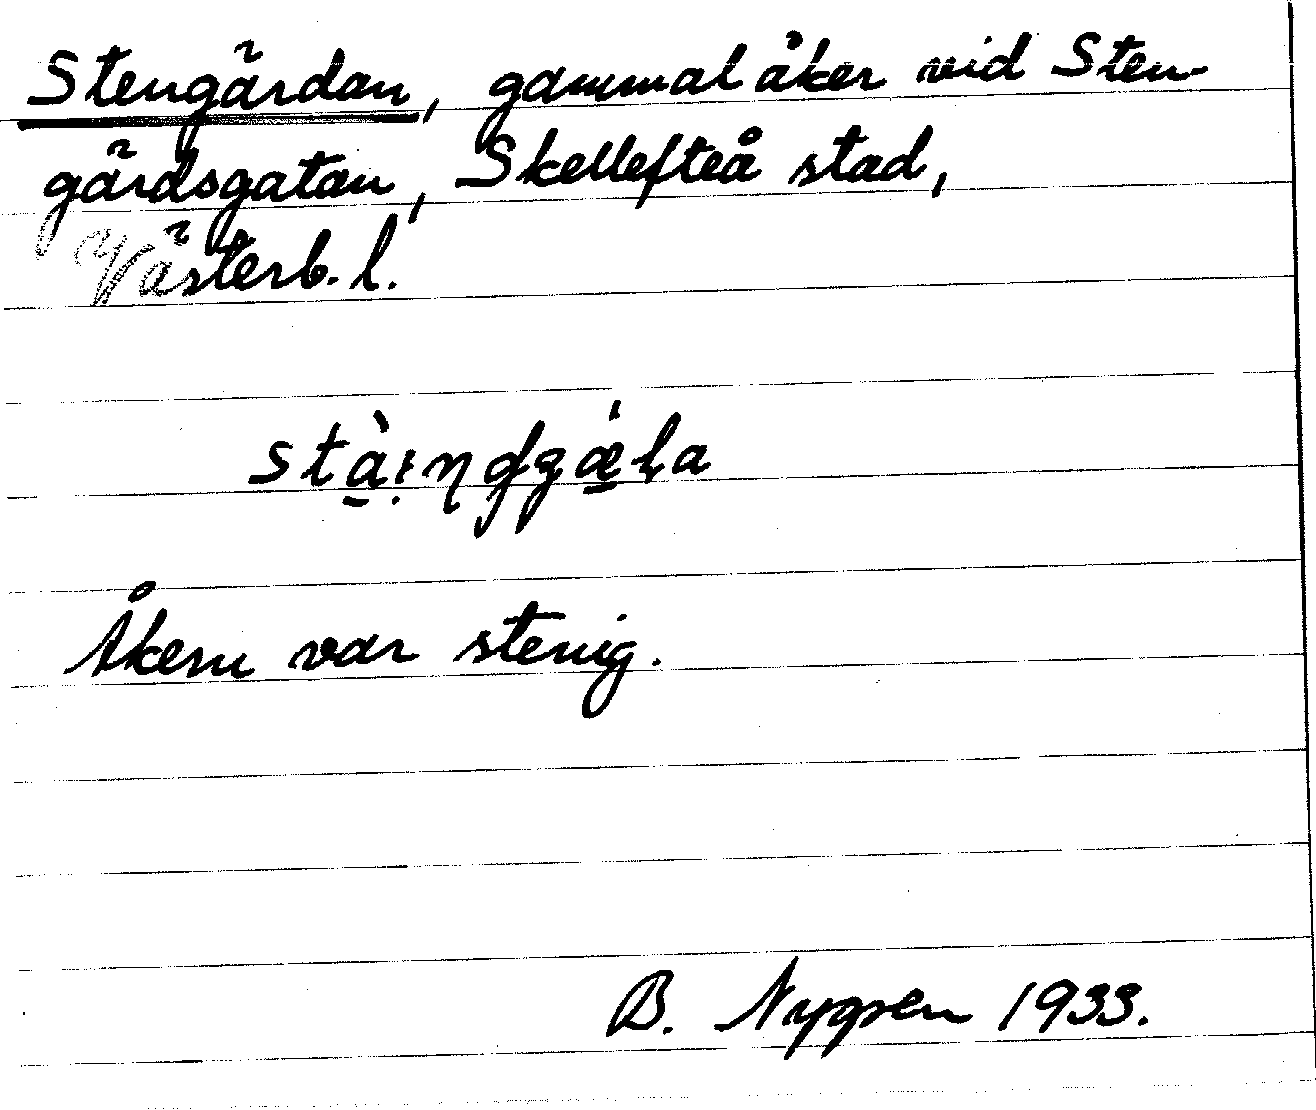 Stengärdan, gammal åker vid Sten-
gärdsgatan, Skellefteå stad,
Västerb. l.
Åkern var stenig.
B. Nygren 1933.